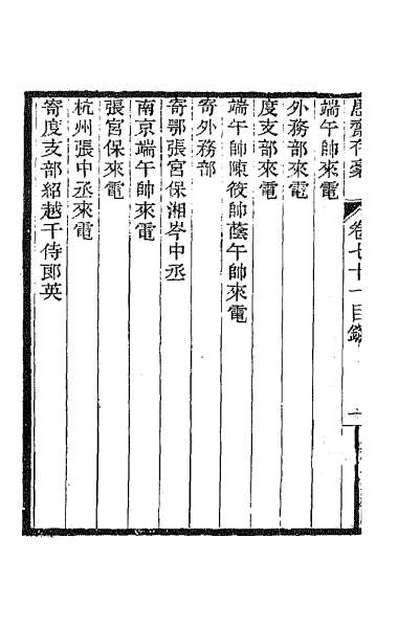 愚齋存稾 卷七十一目錄 一
端午帥來電
外務部來電
度支部來電
端午帥陳筱帥蔭午帥來電
寄外務部
寄鄂張宮保湘岑中丞
南京端午帥來電
張宮保來電
杭州張中丞來電
寄度支部紹越千侍郎英